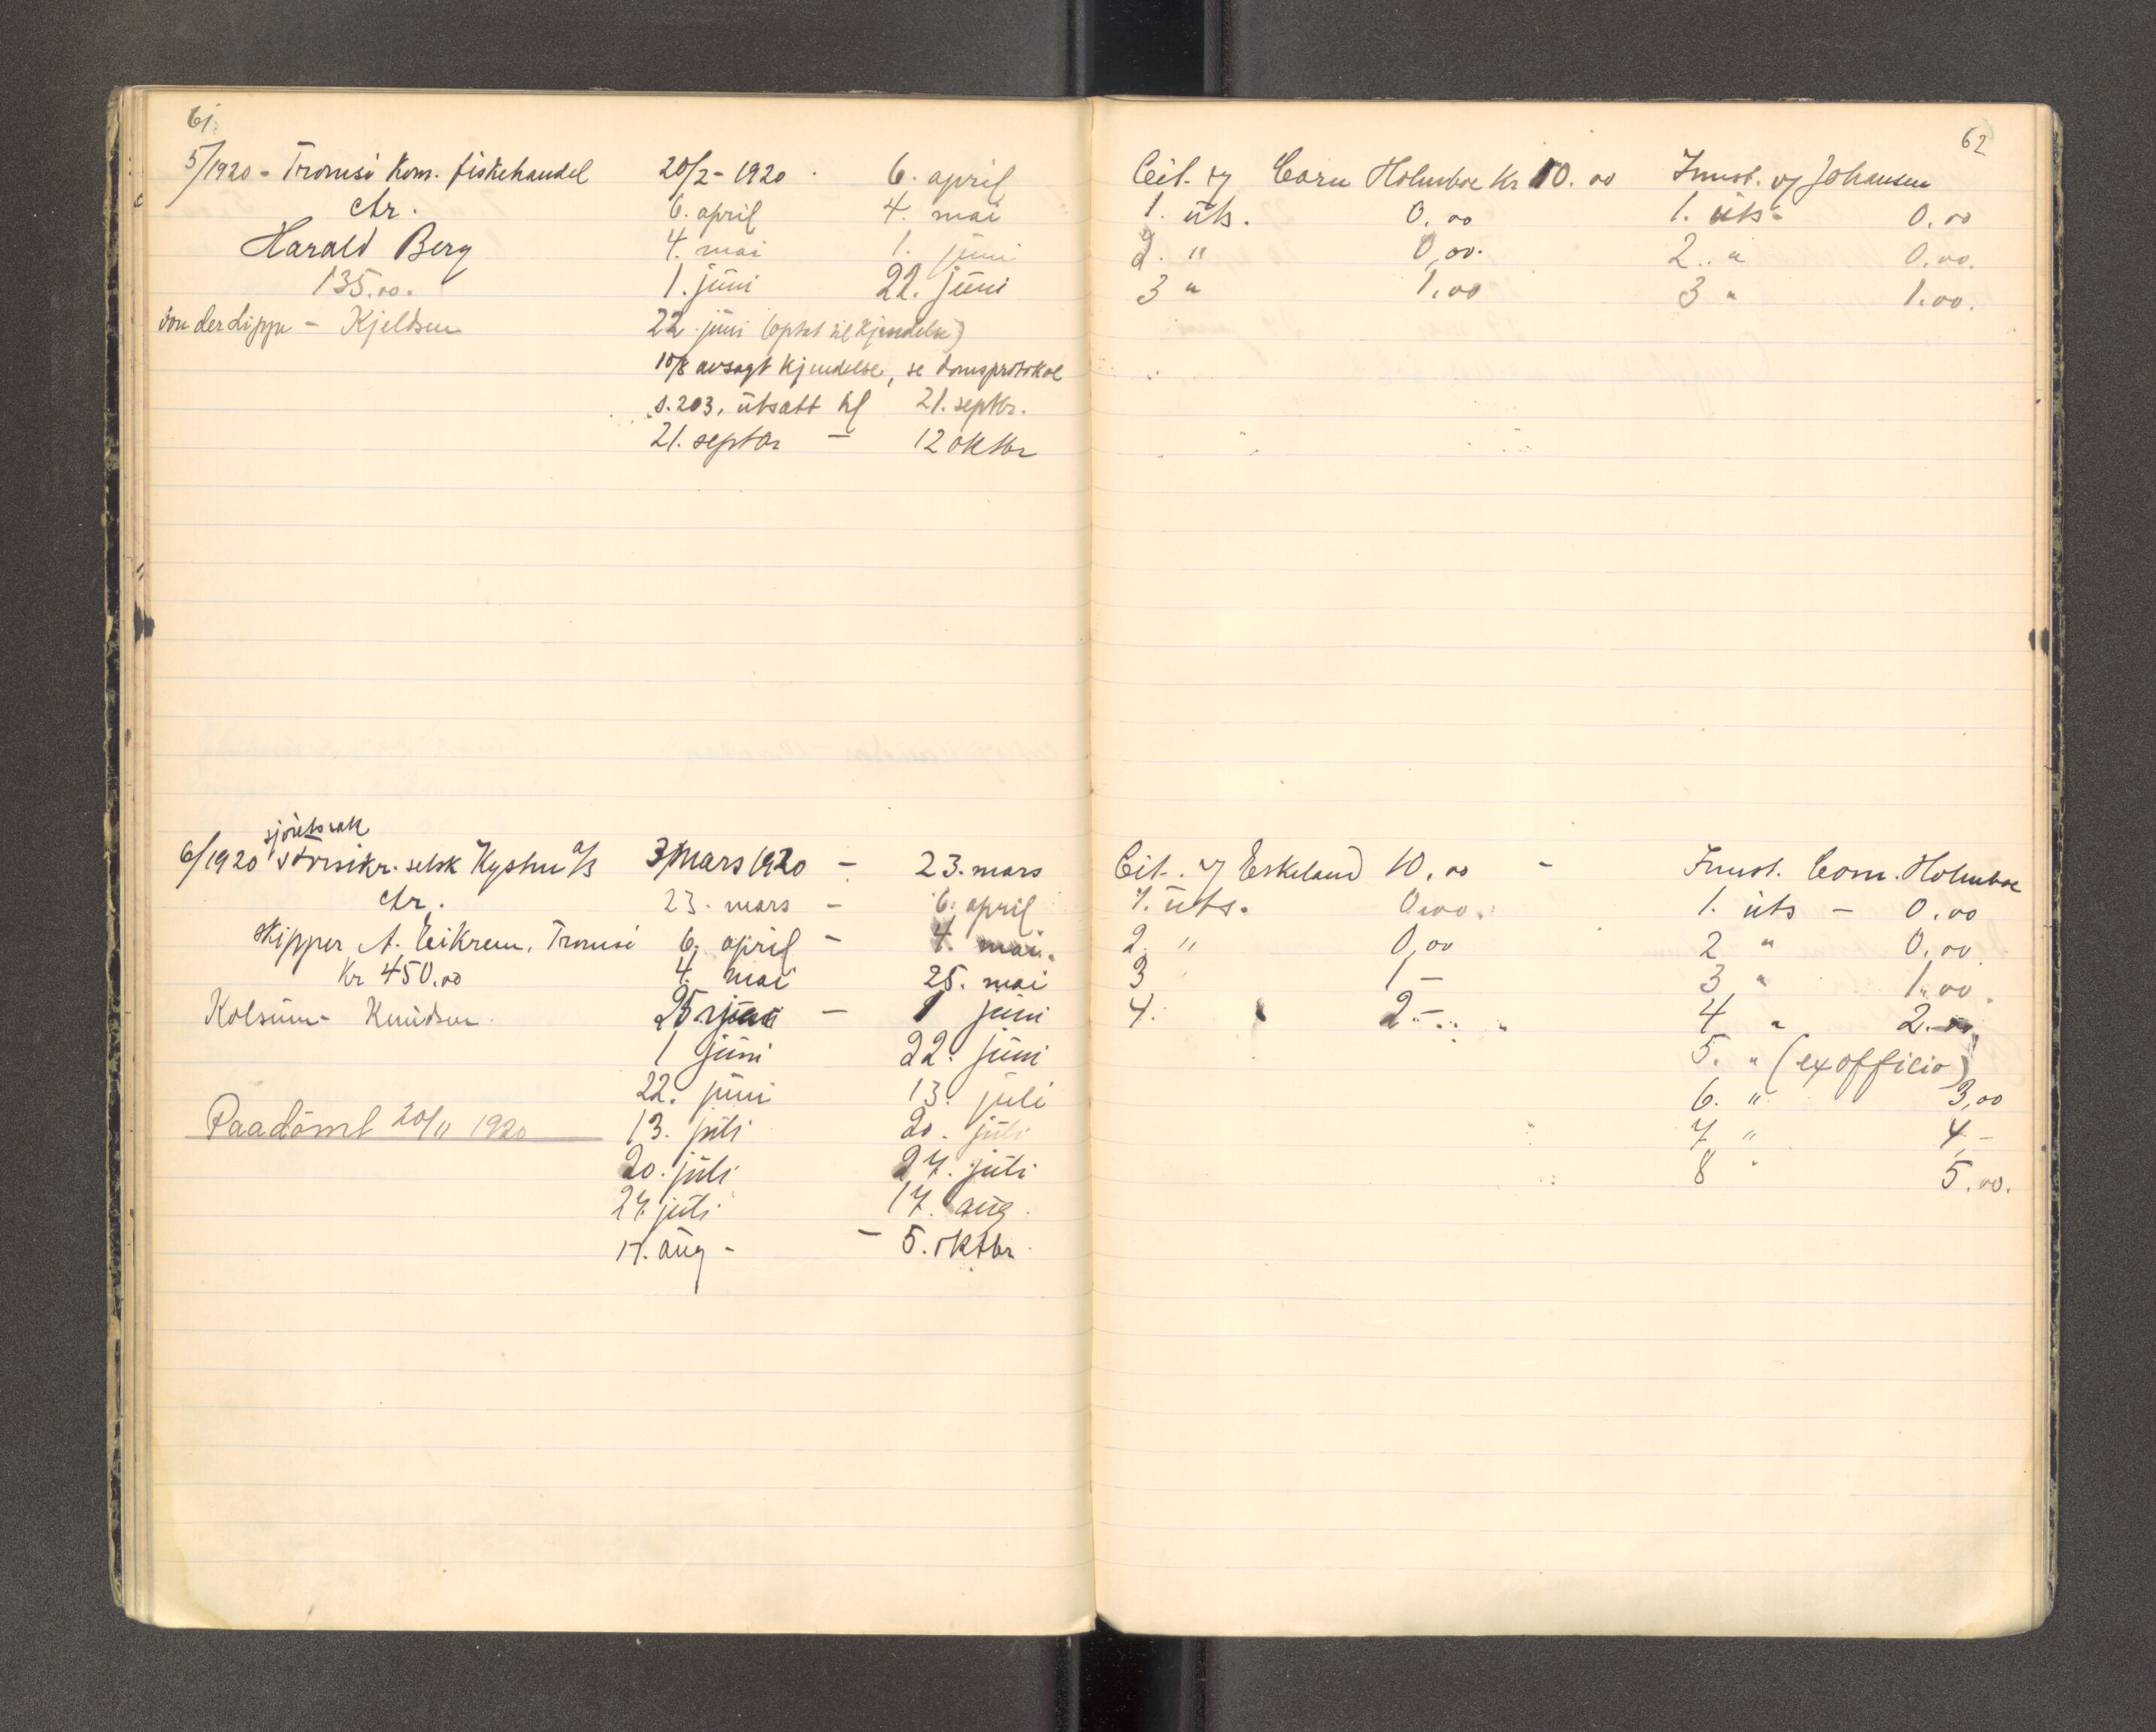 61.
5/1920 - Tromsø kom. fiskehandel 20/2 - 1920 . 6. april
ctr. 6. april 4. mai
Harald Berg 4. mai 1. juni
135.00. 1. juni 22. juni
von der Lippe - Kjeldsen 22. juni (optat til kjendelse)
10/8 avsagt kjendelse, se domsprotokol
s. 203, utsatt til 21. septbr.
21. septbr - 12 oktbr
sjøretssak
6/1920 Forsikr. selsk Kysten a/s 3 mars 1920 - 23. mars
ctr. 23. mars - 6. april
skipper A. Eikrem, Tromsø 6. april - 4. mai.
Kr 450.00 4. mai 25. mai
Kolsum - Knudsen 25 mai - 1 juni
1 juni 22. juni
22. juni 13. juli
Paadømt 20/11 1920 13. juli 20. juli
20. juli 27. juli
27. juli 17. aug.
17. aug - - 5. oktbr.
62
Cit. v/ Corn Holmboe Kr 10.00 Innst. v/ Johansen
1. uts. 0.00 1. uts - 0.00
2. " 0,00. 2. " 0.00.
3 " 1.00 3 " 1.00.
Cit. v/ Eskeland 10.00 - Innst. Corn. Holmboe
1. uts. 0.00. 1. uts - 0.00
2. " 0,00 2 " 0.00
3 1 - 3 " 1.00.
4. 2 - 4 " 2.00
5. " (ex officio)
6. " 3,00
7 " 4 -
8 " 5.00.